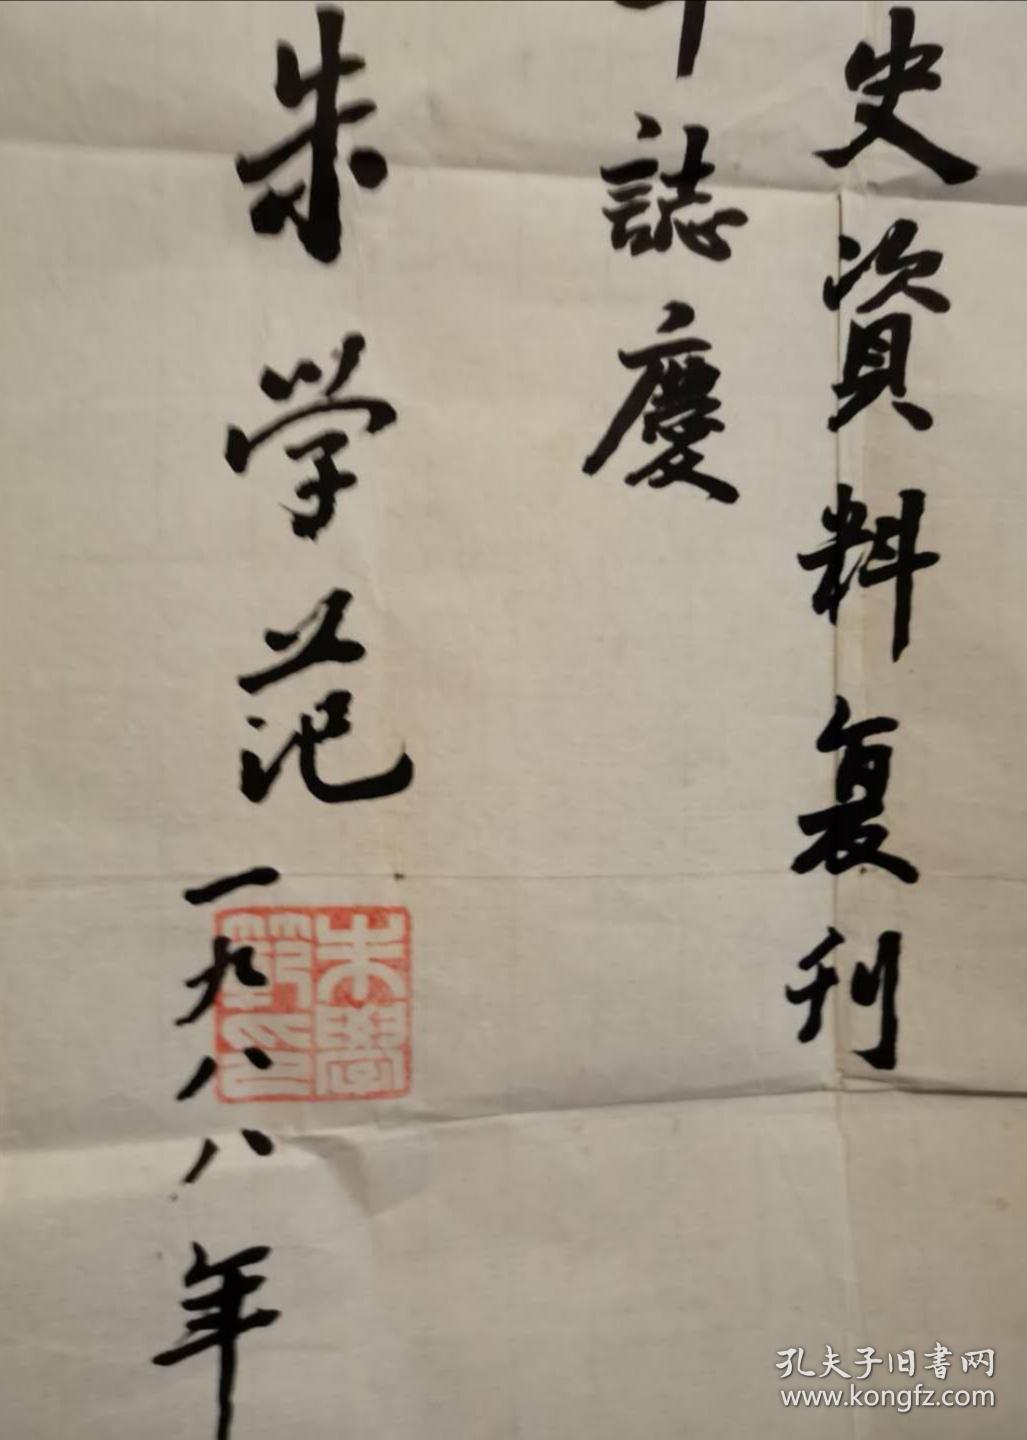 史資料复刊
年誌慶
朱学范
一九八八年
朱學範印
孔夫子旧書网
www.kongfz.com